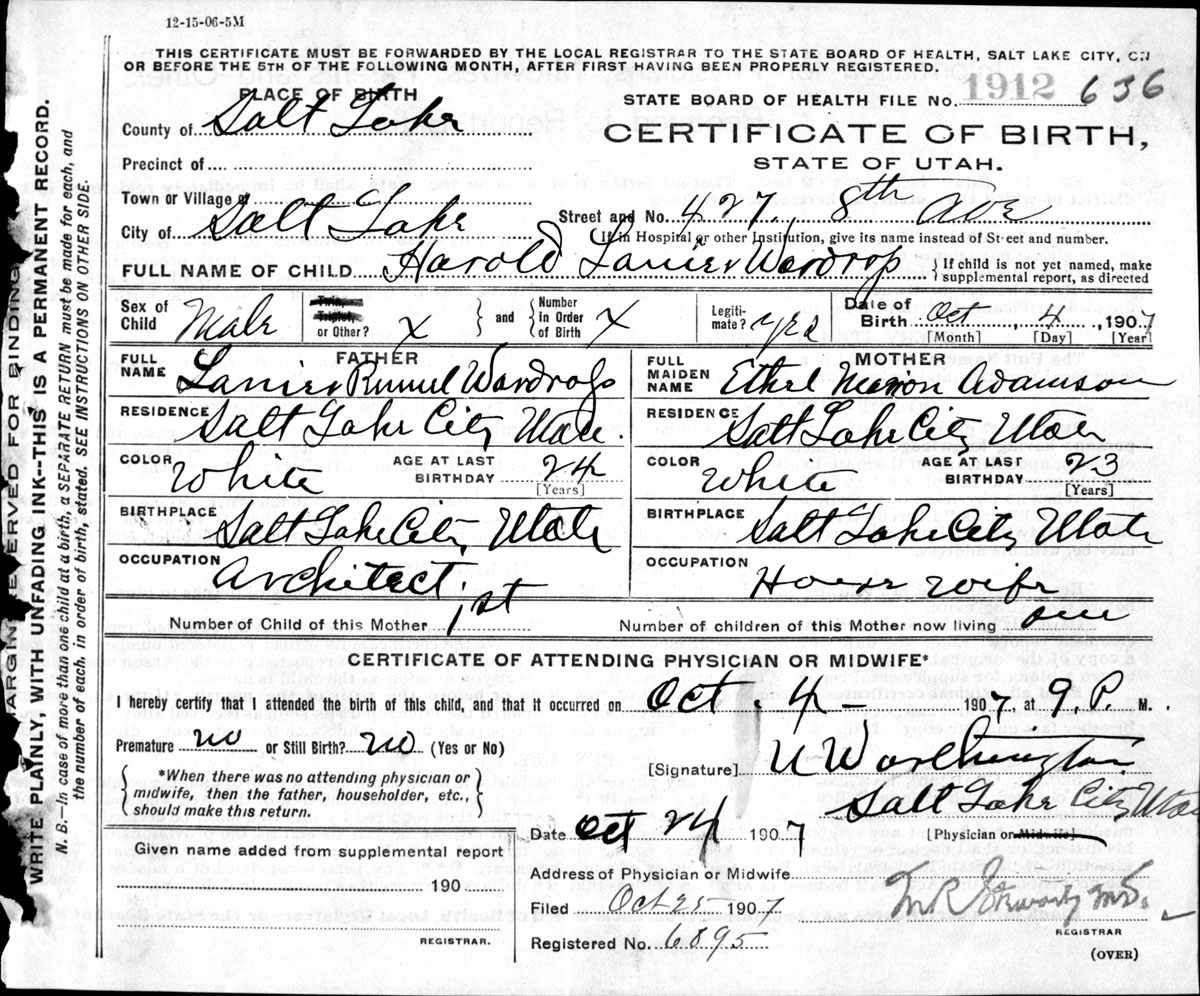 12-15-06-5M
THIS CERTIFICATE MUST BE FORWARDED BY THE LOCAL REGISTRAR TO THE STATE BOARD OF HEALTH, SALT LAKE CITY, ON
OR BEFORE THE 5TH OF THE FOLLOWING MONTH, AFTER FIRST HAVING BEEN PROPERLY REGISTERED.
PLACE OF BIRTH
STATE BOARD OF HEALTH FILE No. 1912 636
County of Salt Lake
CERTIFICATE OF BIRTH,
Precinct of
STATE OF UTAH.
Town or Village of
City of Salt Lake Street and No. 427. 8th Ave
If in Hospital or other Institution, give its name instead of Street and number.
FULL NAME OF CHILD Harold Lanier Wardrop { If child is not yet named, make
supplemental report, as directed
Sex of Child Male Twin, Triplet, or Other? X } and { Number in Order of Birth X Legiti-mate? yes Date of Birth Oct, 4, 1907
[Month] [Day] [Year]
FATHER
FULL NAME Lanier Wardrop
RESIDENCE Salt Lake City Utah.
COLOR White AGE AT LAST BIRTHDAY 24
[Years]
BIRTHPLACE Salt Lake City, Utah
OCCUPATION Architect.
MOTHER
FULL MAIDEN NAME Ethel Marion Adamson
RESIDENCE Salt Lake City Utah
COLOR White AGE AT LAST BIRTHDAY 23
[Years]
BIRTHPLACE Salt Lake City Utah
OCCUPATION House wife
Number of Child of this Mother 1st Number of children of this Mother now living one
CERTIFICATE OF ATTENDING PHYSICIAN OR MIDWIFE*
I hereby certify that I attended the birth of this child, and that it occurred on Oct. 4 - 1907, at 9. P. M.
Premature no or Still Birth? no (Yes or No)
{ *When there was no attending physician or
midwife, then the father, householder, etc.,
should make this return. }
[Signature] U Worthington
Salt Lake City Utah
Date Oct 24 1907 [Physician or Midwife]
Given name added from supplemental report
190
REGISTRAR.
Address of Physician or Midwife
Filed Oct 25 1907 M.D.
REGISTRAR
Registered No. 6895
(OVER)
MARGIN RESERVED FOR BINDING
WRITE PLAINLY, WITH UNFADING INK--THIS IS A PERMANENT RECORD.
N. B.—In case of more than one child at a birth, a SEPARATE RETURN must be made for each, and
the number of each, in order of birth, stated. SEE INSTRUCTIONS ON OTHER SIDE.